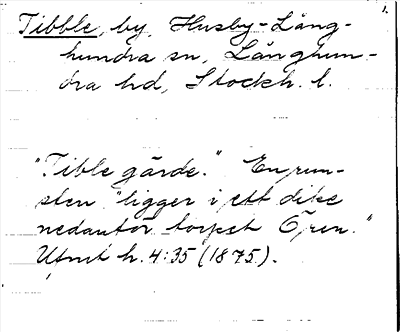 1.
Tibble, by, Husby-Lång-
hundra sn, Långhun-
dra hd, Stockh. l.
"Tible gärde." En run-
sten "ligger i ett dike
nedanför torpet Ören."
Upmt h. 4:35 (1875).